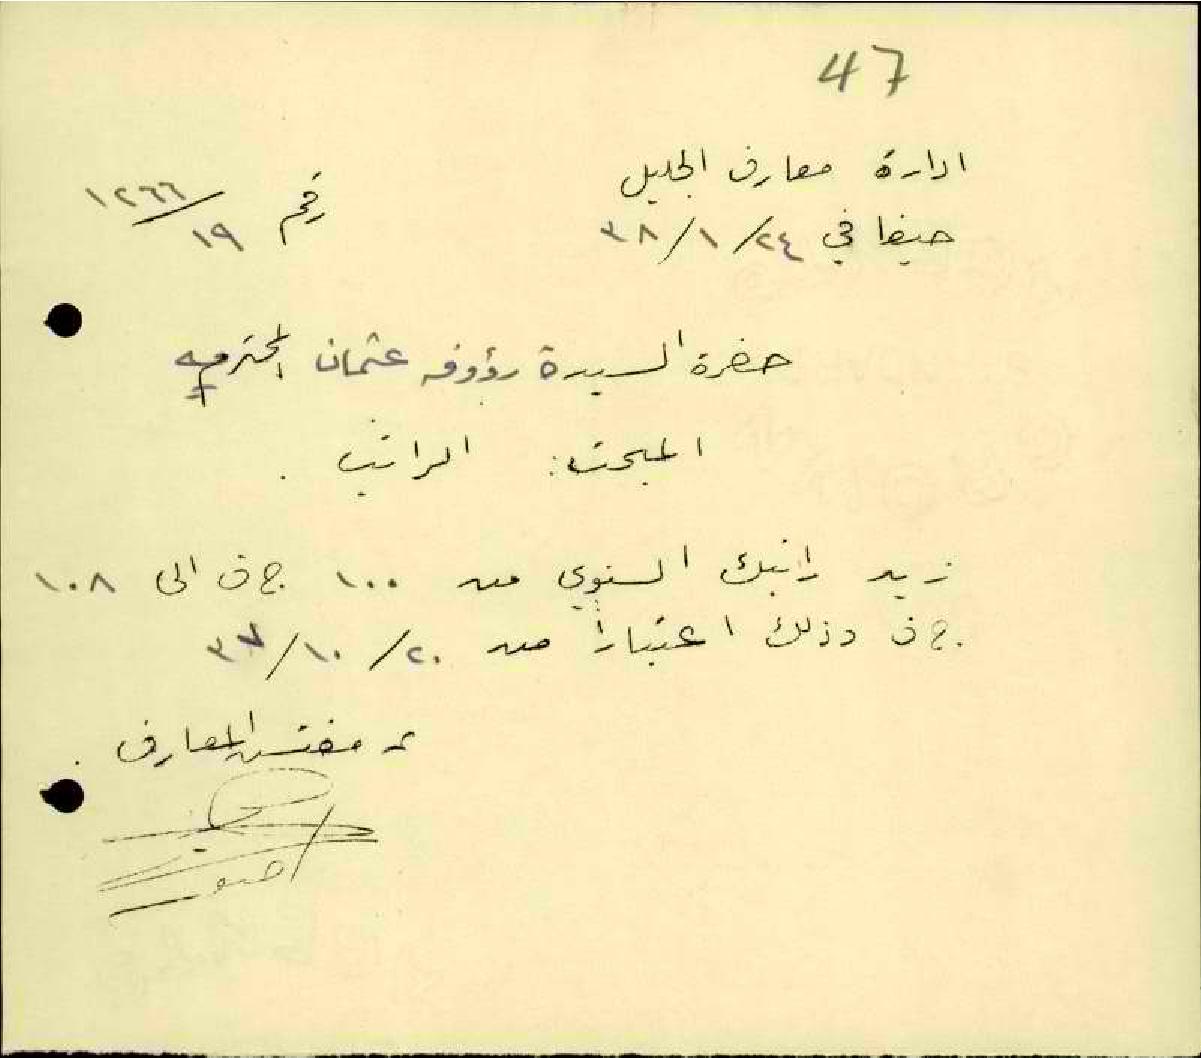 47
ادارة معارف الجليل
رقم ١٢٦٦/١٩
حيفا في ٢٤/١/٣٨
حضرة السيدة رؤوفه عثمان المحترمه
المبحث: الراتب.
زيد راتبك السنوي من ١٠٠ ج ف الى ١٠٨
ج ف وذلك اعتباراً من ٢٠/١٠/٣٧
عن مفتش المعارف